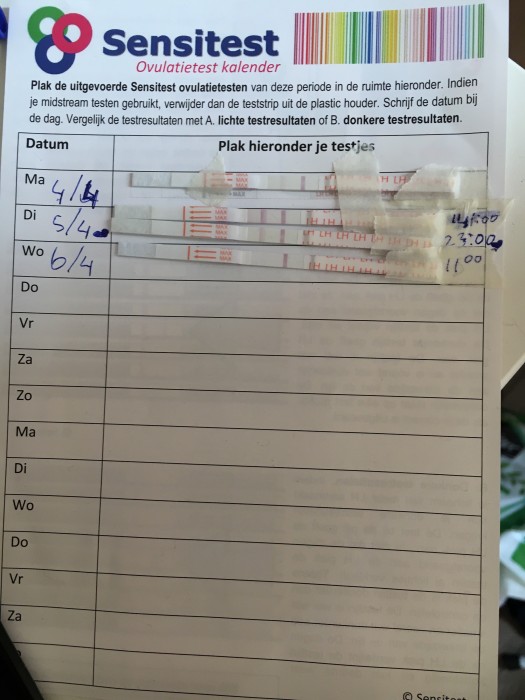 Sensitest
Ovulatietest kalender
Plak de uitgevoerde Sensitest ovulatietesten van deze periode in de ruimte hieronder. Indien
je midstream testen gebruikt, verwijder dan de teststrip uit de plastic houder. Schrijf de datum bij
de dag. Vergelijk de testresultaten met A. lichte testresultaten of B. donkere testresultaten.
Datum Plak hieronder je testjes
Ma 4/4 MAX MAX H LH
Di 5/4 MAX MAX LH LH LH
MAX MAX LH LH LH LH LH LH 23:00
Wo 6/4 MAX MAX LH LH LH LH 11 00
Do
Vr
Za
Zo
Ma
Di
Wo
Do
Vr
Za
© Sensitest